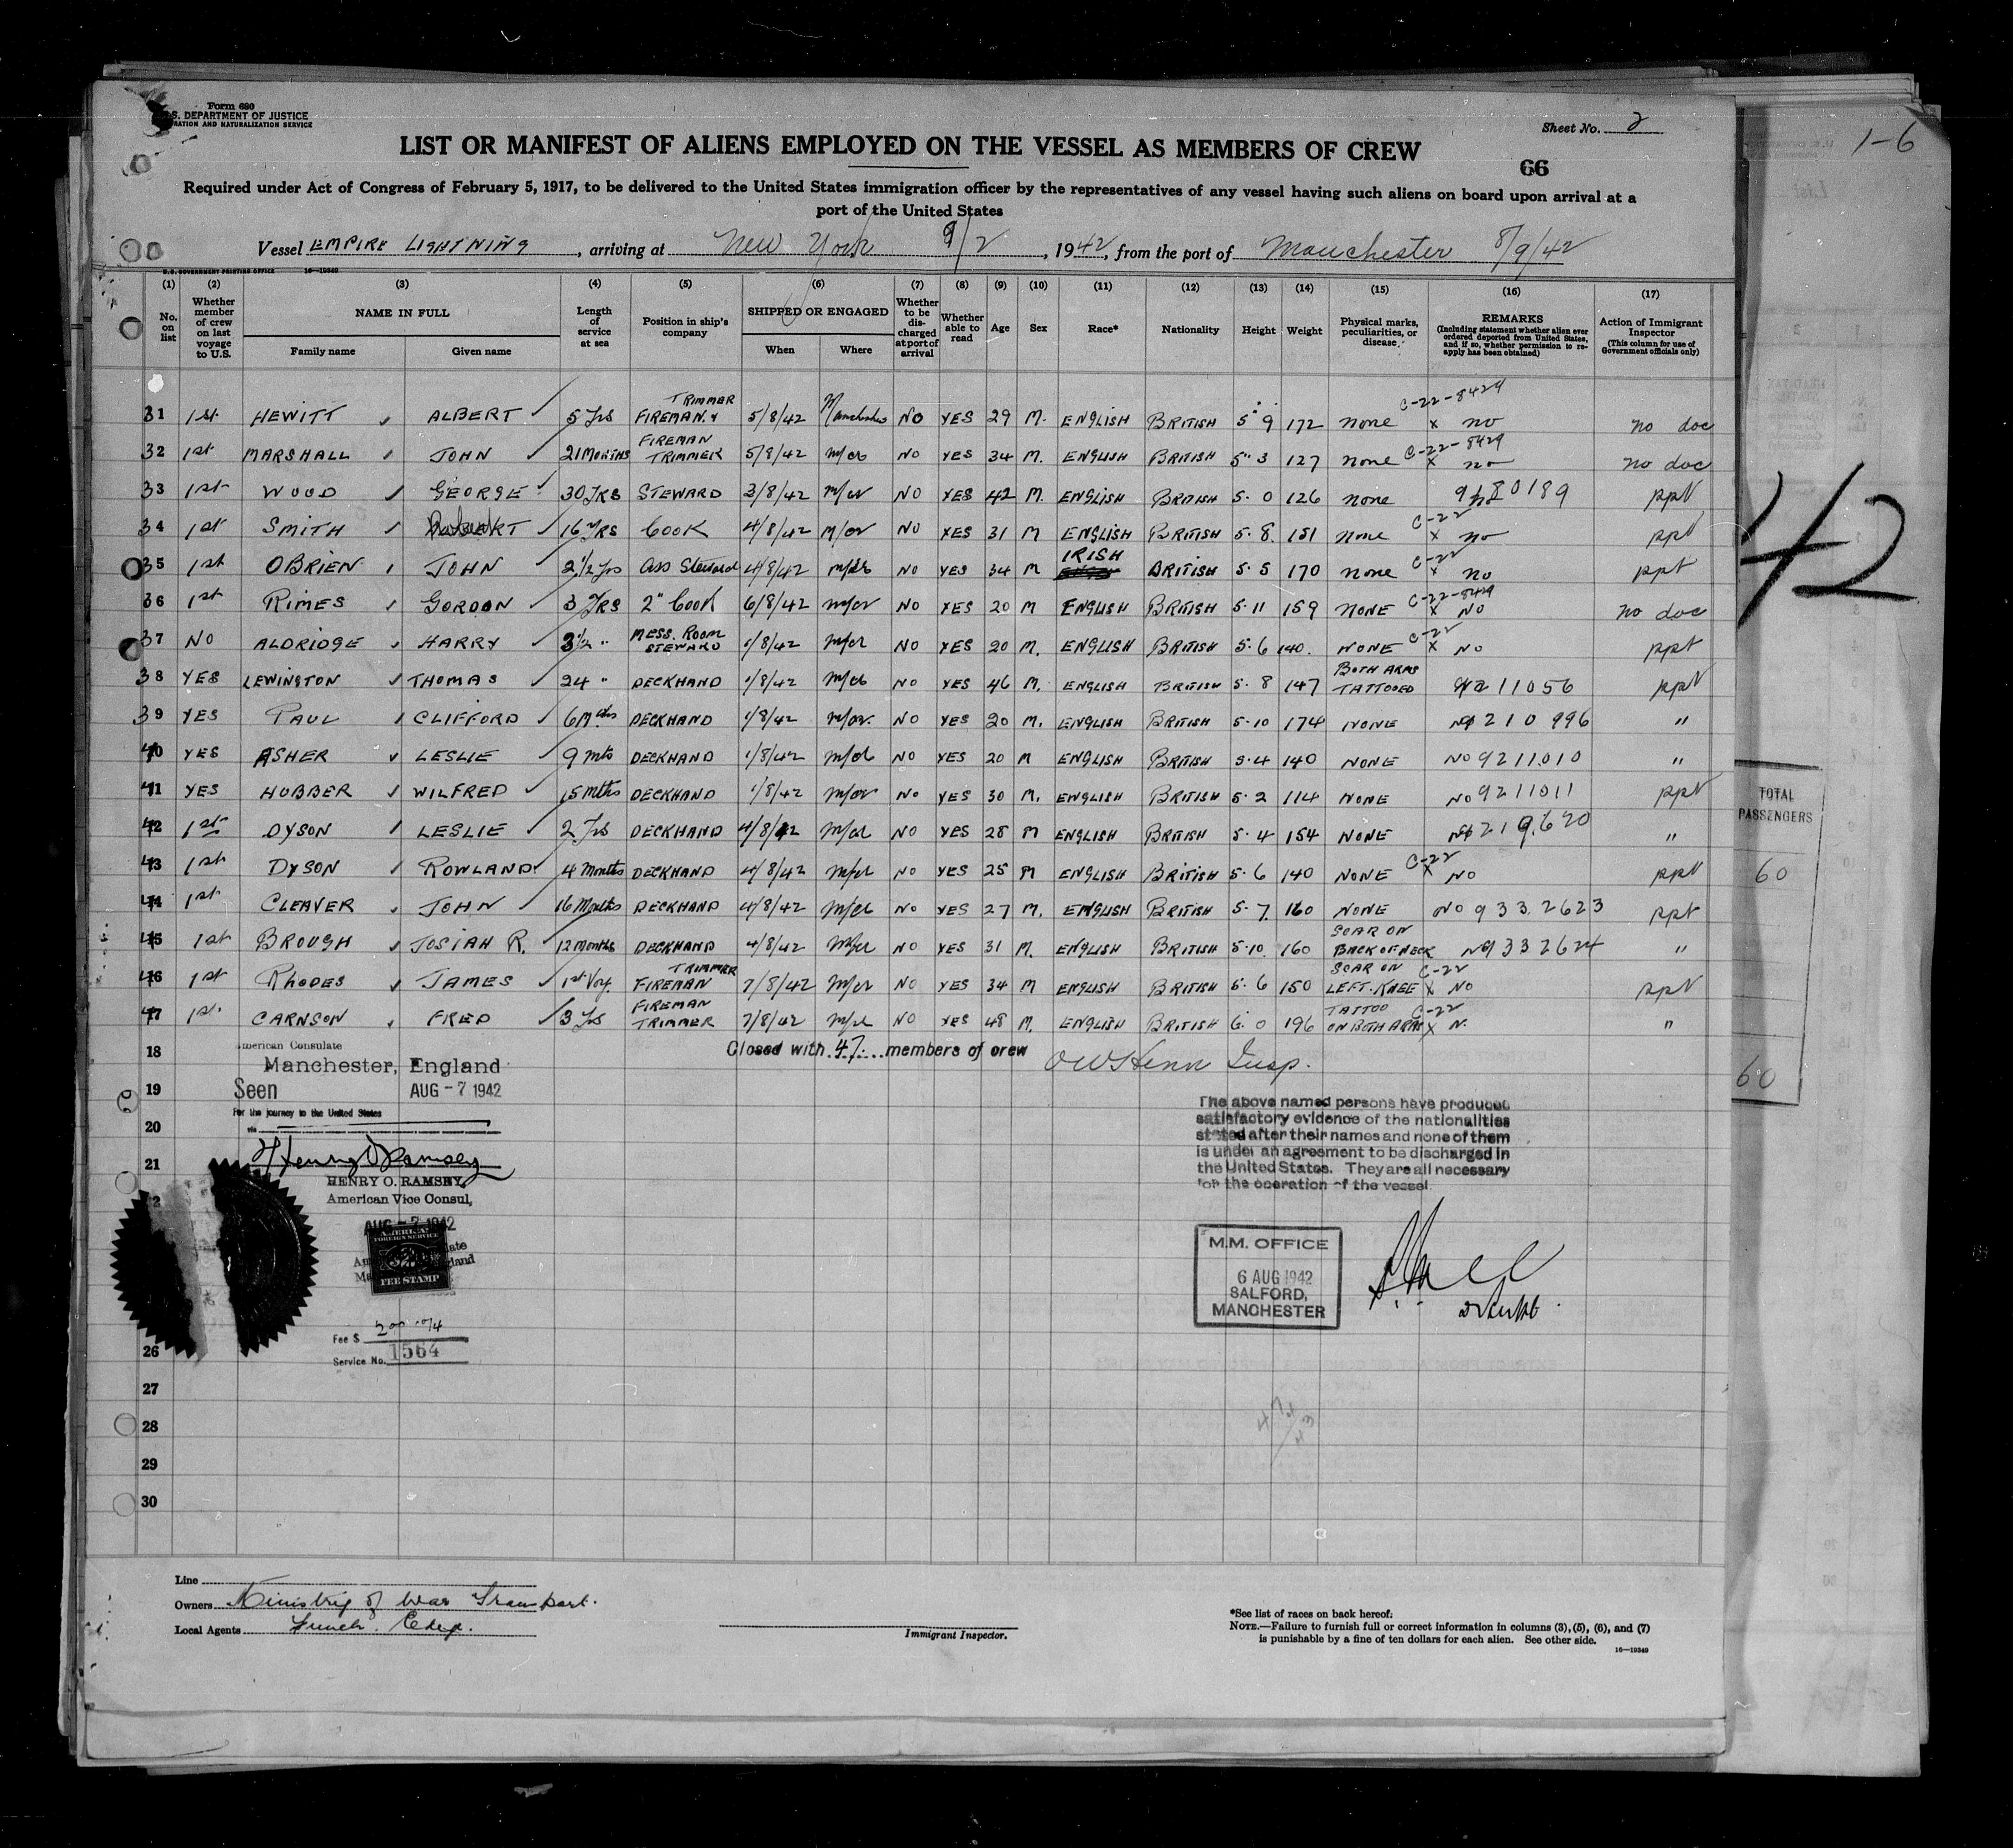 Form 680
S. DEPARTMENT OF JUSTICE
RATION AND NATURALIZATION SERVICE
Sheet No. 2
1-6
LIST OR MANIFEST OF ALIENS EMPLOYED ON THE VESSEL AS MEMBERS OF CREW
66
Required under Act of Congress of February 5, 1917, to be delivered to the United States immigration officer by the representatives of any vessel having such aliens on board upon arrival at a
port of the United States
Vessel EMPIRE LIGHTNING, arriving at New York 9/2, 1942, from the port of Manchester 8/9/42
U.S. GOVERNMENT PRINTING OFFICE 16—19349
(1) (2) (3) (4) (5) (6) (7) (8) (9) (10) (11) (12) (13) (14) (15) (16) (17)
No. on list | Whether member of crew on last voyage to U.S. | NAME IN FULL Family name Given name | Length of service at sea | Position in ship's company | SHIPPED OR ENGAGED When Where | Whether to be discharged at port of arrival | Whether able to read | Age | Sex | Race* | Nationality | Height | Weight | Physical marks, peculiarities, or disease | REMARKS (Including statement whether alien ever ordered deported from United States, and if so, whether permission to re-apply has been obtained) | Action of Immigrant Inspector (This column for use of Government officials only)
31 1st HEWITT ALBERT 5 Yrs TRIMMER FIREMAN.& 5/8/42 Manchester NO YES 29 M. ENGLISH BRITISH 5" 9 172 none C-22-8429 x no no doc
32 1st MARSHALL JOHN 21 MONTHS FIREMAN TRIMMER 5/8/42 m/cr NO YES 34 M. ENGLISH BRITISH 5" 3 127 none C-22-8429 x no no doc
33 1st WOOD GEORGE 30 YRS STEWARD 3/8/42 m/cr NO YES 42 M. ENGLISH BRITISH 5. 0 126 none 980189 ppt
34 1st SMITH 16 YRS COOK 4/8/42 M/cr NO YES 31 M ENGLISH BRITISH 5. 8. 151 none C-22 x no ppt
35 1st OBRIEN JOHN 2½ Yrs Ass Steward 4/8/42 m/cr NO YES 34 M IRISH BRITISH 5. 5 170 none C-22 x no ppt
36 1st RIMES GORDON 3 YRS 2" Cook 6/8/42 m/cr NO YES 20 M ENGLISH BRITISH 5. 11 159 NONE C-22-8429 x NO no doc
37 NO ALDRIDGE HARRY 3½ " MESS. ROOM STEWARD 1/8/42 m/cr NO YES 20 M. ENGLISH BRITISH 5. 6 140. NONE C-22 x NO ppt
38 YES LEWINGTON THOMAS 24 " DECKHAND 1/8/42 m/cr NO YES 46 M. ENGLISH BRITISH 5. 8 147 BOTH ARMS TATTOOED 9211056 ppt
39 YES PAUL CLIFFORD 6 Mths DECKHAND 1/8/42 m/cr. NO YES 20 M. ENGLISH BRITISH 5. 10 174 NONE 9210996 "
40 YES ASHER LESLIE 9 mts DECKHAND 1/8/42 m/cr NO YES 20 M ENGLISH BRITISH 5. 4 140 NONE NO 9211010 "
41 YES HUBBER WILFRED 15 mths DECKHAND 1/8/42 m/cr No YES 30 M. ENGLISH BRITISH 5. 2 114 NONE NO 9211011 ppt
42 1st DYSON LESLIE 2 Yrs DECKHAND 4/8/42 m/cr NO YES 28 M ENGLISH BRITISH 5. 4 154 NONE 9219620 "
43 1st DYSON ROWLAND 4 Months DECKHAND 4/8/42 m/cr NO YES 25 M ENGLISH BRITISH 5. 6 140 NONE C-22 x NO ppt
44 1st CLEAVER JOHN 16 Months DECKHAND 4/8/42 m/cr No YES 27 M. ENGLISH BRITISH 5. 7. 160 NONE NO 9332623 ppt
45 1st BROUGH JOSIAH R. 12 Months DECKHAND 4/8/42 m/cr NO YES 31 M. ENGLISH BRITISH 5. 10. 160 SCAR ON BACK OF NECK NO 9332624 "
46 1st RHODES JAMES 1st Voy. TRIMMER FIREMAN 7/8/42 m/cr NO YES 34 M ENGLISH BRITISH 5. 6 150 SCAR ON LEFT. KNEE C-22 x NO ppt
47 1st. CARNSON FRED 3 Yrs FIREMAN TRIMMER 7/8/42 m/cr NO YES 48 M. ENGLISH BRITISH 6. 0 196 TATTOO ON BOTH ARMS C-22 x N. "
42
TOTAL
PASSENGERS
60
60
18 American Consulate
Manchester, England
Closed with 47 members of crew
Insp.
19 Seen AUG - 7 1942
For the journey to the United States
20 via
21
Henry O Ramsey
HENRY O. RAMSEY,
American Vice Consul,
AUG - 7 1942
AMERICAN
FOREIGN SERVICE
FEE STAMP
Fee $
Service No. 1564
The above named persons have produced
satisfactory evidence of the nationalities
stated after their names and none of them
is under an agreement to be discharged in
the United States. They are all necessary
for the operation of the vessel.
M.M. OFFICE
6 AUG 1942
SALFORD,
MANCHESTER
26
27
28
29
30
47/43
Line
Owners Ministry of War Transport.
Local Agents Funch. Edye.
Immigrant Inspector.
*See list of races on back hereof.
NOTE.—Failure to furnish full or correct information in columns (3), (5), (6), and (7)
is punishable by a fine of ten dollars for each alien. See other side.
16—19349